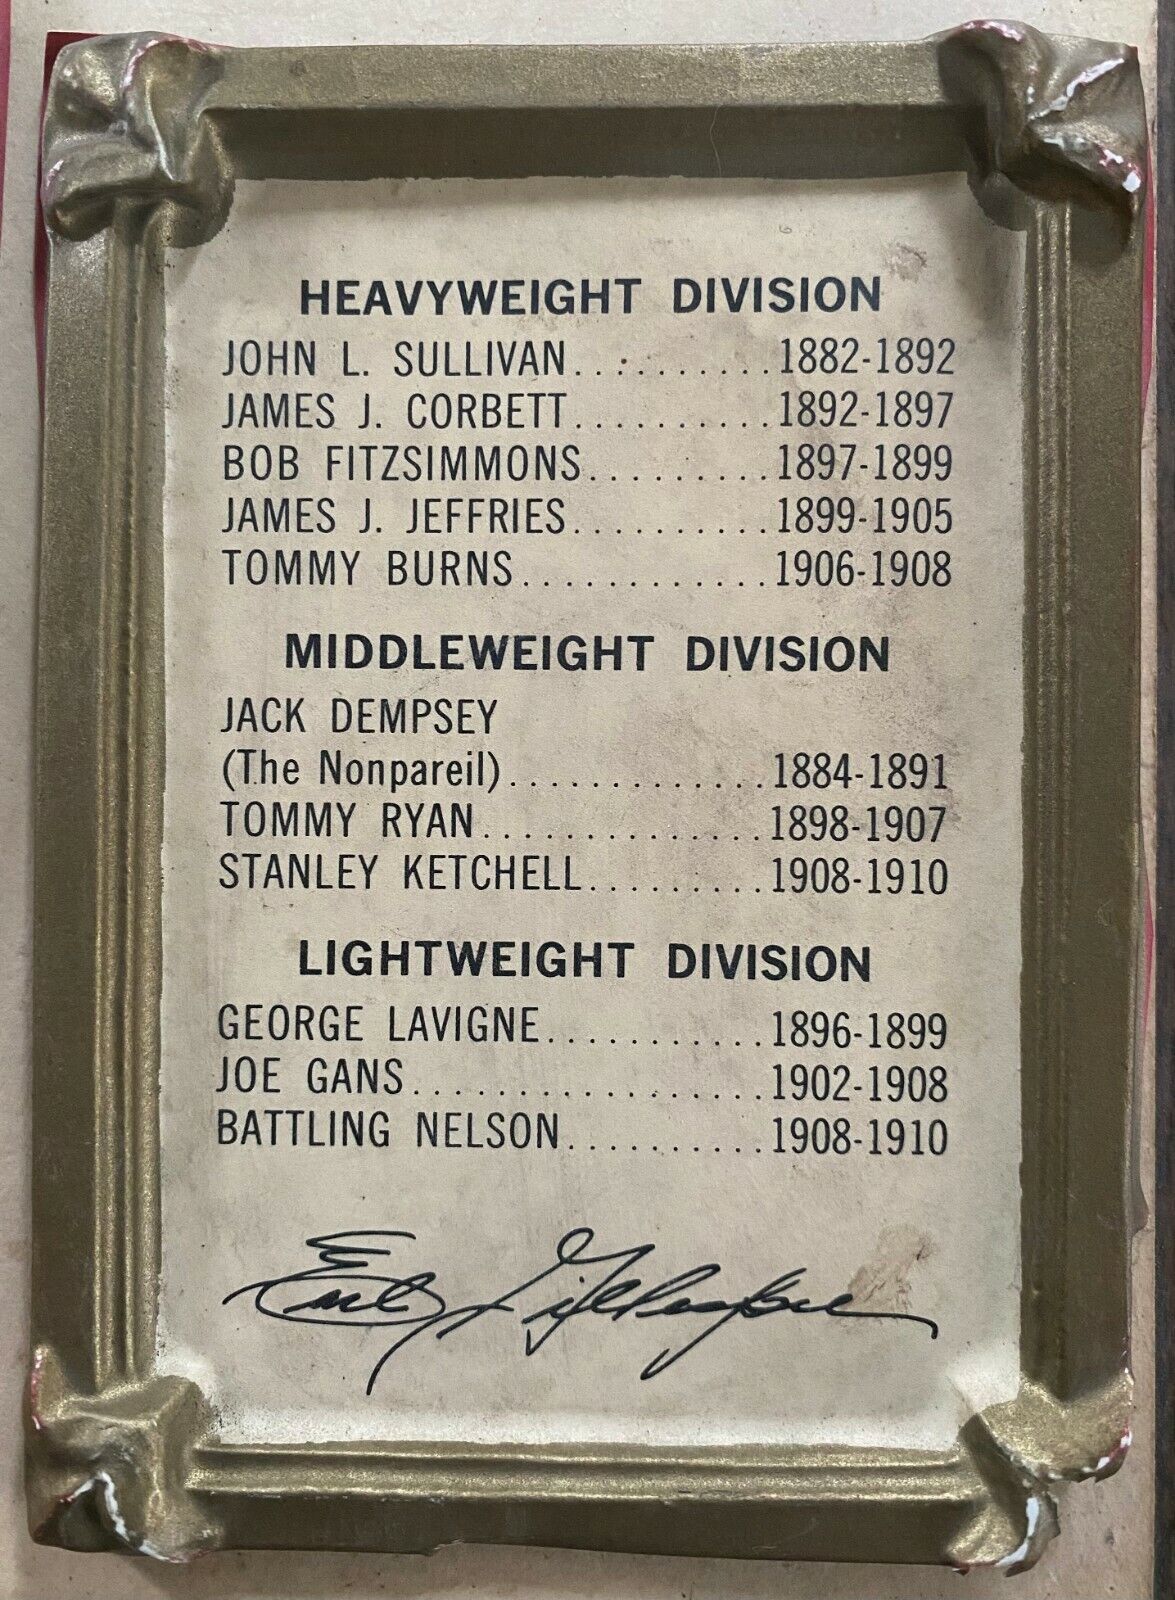 HEAVYWEIGHT DIVISION
JOHN L. SULLIVAN.......... 1882-1892
JAMES J. CORBETT.......... 1892-1897
BOB FITZSIMMONS......... 1897-1899
JAMES J. JEFFRIES.......... 1899-1905
TOMMY BURNS............ 1906-1908
MIDDLEWEIGHT DIVISION
JACK DEMPSEY
(The Nonpareil)............. 1884-1891
TOMMY RYAN.............. 1898-1907
STANLEY KETCHELL......... 1908-1910
LIGHTWEIGHT DIVISION
GEORGE LAVIGNE........... 1896-1899
JOE GANS................. 1902-1908
BATTLING NELSON.......... 1908-1910